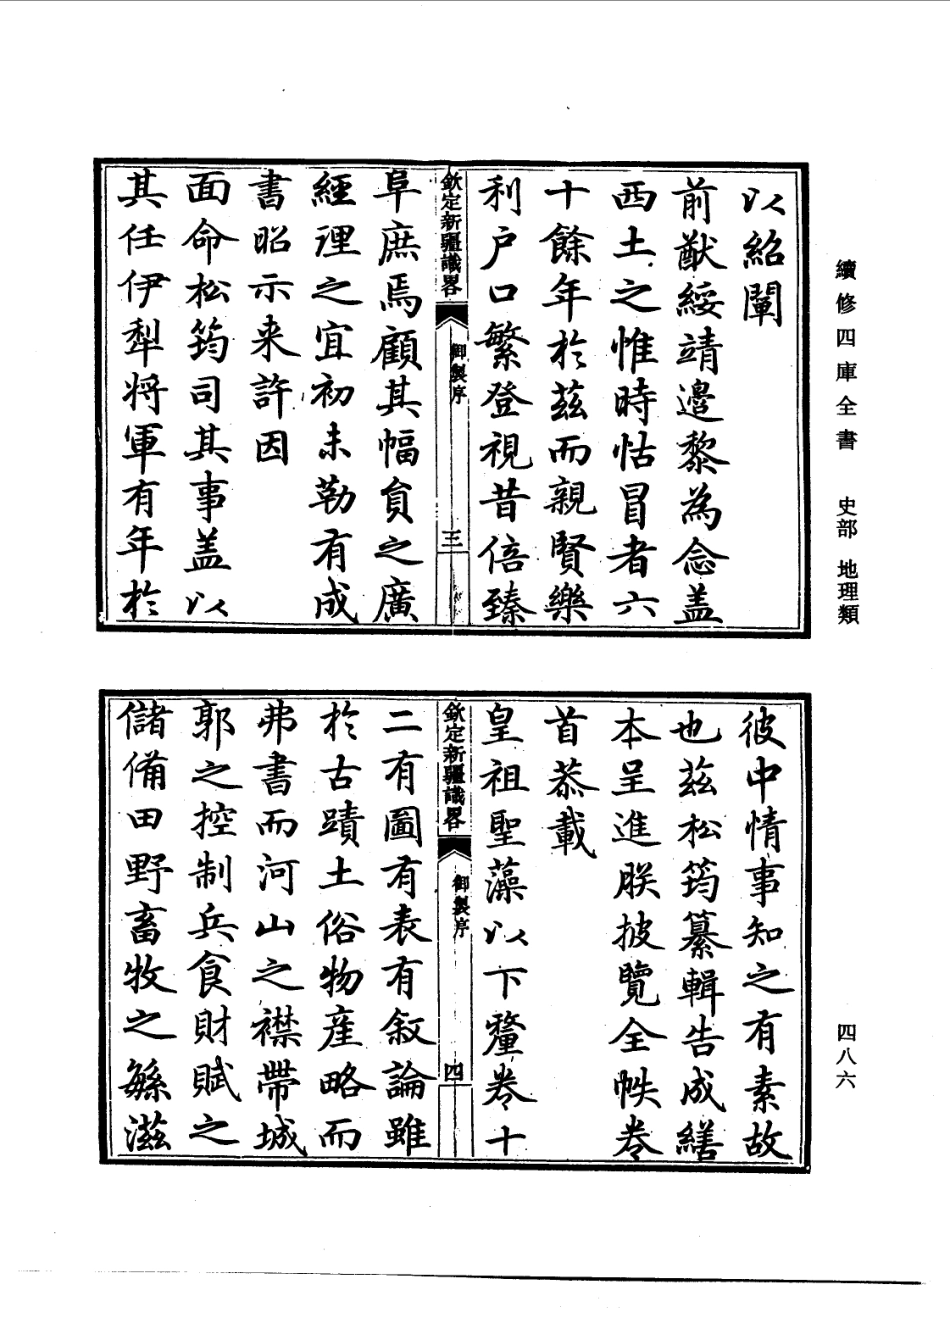 續修四庫全書 史部 地理類
以紹闡
前猷綏靖邊黎為念盖
西土之惟時怙冒者六
十餘年於茲而親賢樂
利户口繁登視昔倍臻
欽定新疆識畧 御製序 三
阜庶焉顧其幅員之廣
經理之宜初未勒有成
書昭示来許因
面命松筠司其事盖以
其任伊犁将軍有年於
彼中情事知之有素故
也茲松筠纂輯告成繕
本呈進朕披覽全帙卷
首恭載
皇祖聖藻以下釐卷十
欽定新疆識畧 御製序 四
二有圖有表有叙論雖
於古蹟土俗物産略而
弗書而河山之襟帶城
郭之控制兵食財賦之
儲備田野畜牧之緐滋
四八六